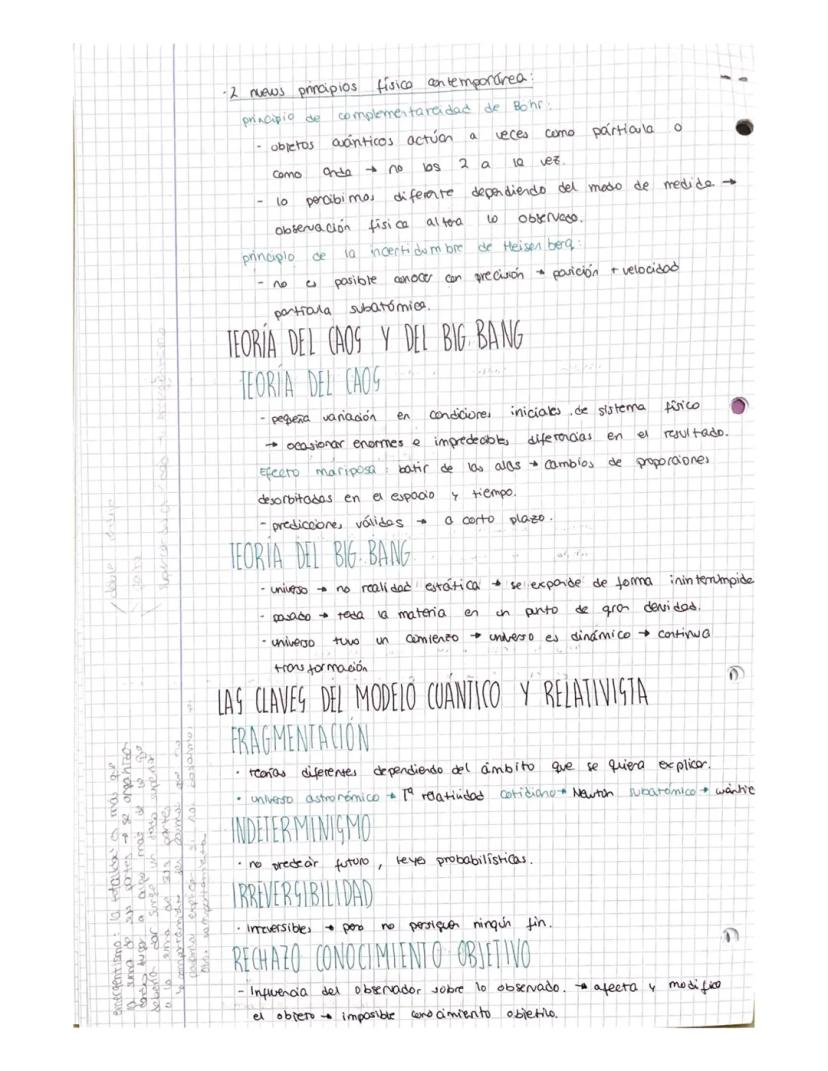 - 2 nuevos principios físico contemporánea:
principio de complementareidad de Bohr:
- objetos cuánticos actúan a veces como partícula o
como onda → no los 2 a la vez.
- lo percibimos diferente dependiendo del modo de medida →
observación física altera lo observado.
principio de la incertidumbre de Heisenberg:
- no es posible conocer con precisión → posición + velocidad
partícula subatómica.
TEORÍA DEL CAOS Y DEL BIG. BANG
TEORÍA DEL CAOS
- pequeña variación en condiciones iniciales de sistema físico
→ ocasionar enormes e impredecibles diferencias en el resultado.
Efecto mariposa: batir de las alas → cambios de proporciones
desorbitadas en el espacio y tiempo.
- predicciones válidas → a corto plazo.
TEORÍA DEL BIG. BANG
- universo → no realidad estática → se expande de forma ininterrumpida
- pasado → toda la materia en un punto de gran densidad.
- universo tuvo un comienzo → universo es dinámico → continua
transformación
LAS CLAVES DEL MODELO CUÁNTICO Y RELATIVISTA
FRAGMENTACIÓN
· teorías diferentes dependiendo del ámbito que se quiera explicar.
· universo astronómico → Tª relatividad cotidiano → Newton subatómico → cuántic
INDETERMINISMO
· no predecir futuro, leyes probabilísticas.
IRREVERSIBILIDAD
· irreversibles → pero no persiguen ningún fin.
RECHAZO CONOCIMIENTO OBJETIVO
- Influencia del observador sobre lo observado. → afecta y modifica
el objeto → imposible conocimiento objetivo.
emergentismo: la totalidad es más que
la suma de sus partes → se organizan